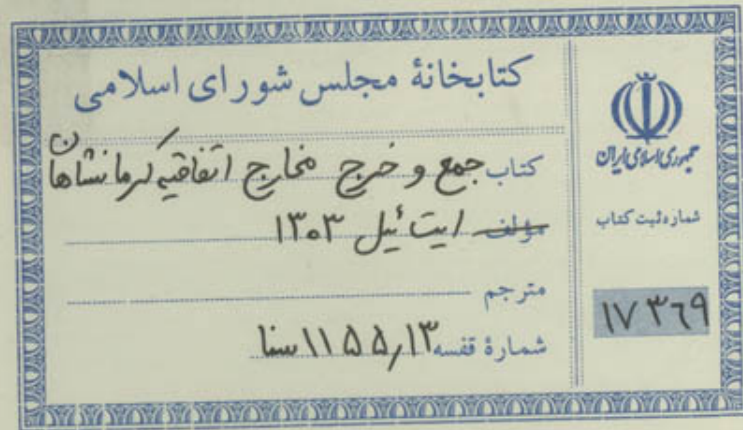 کتابخانهٔ مجلس شورای اسلامی
کتاب جمع و خرج مخارج اتفاقیه کرمانشاهان
مؤلف ایت ئیل ۱۳۰۳
مترجم
شمارهٔ قفسه ۱۱۵۵٫۱۳ سنا
جمهوری اسلامی ایران
شماره ثبت کتاب
۱۷۳۶۹